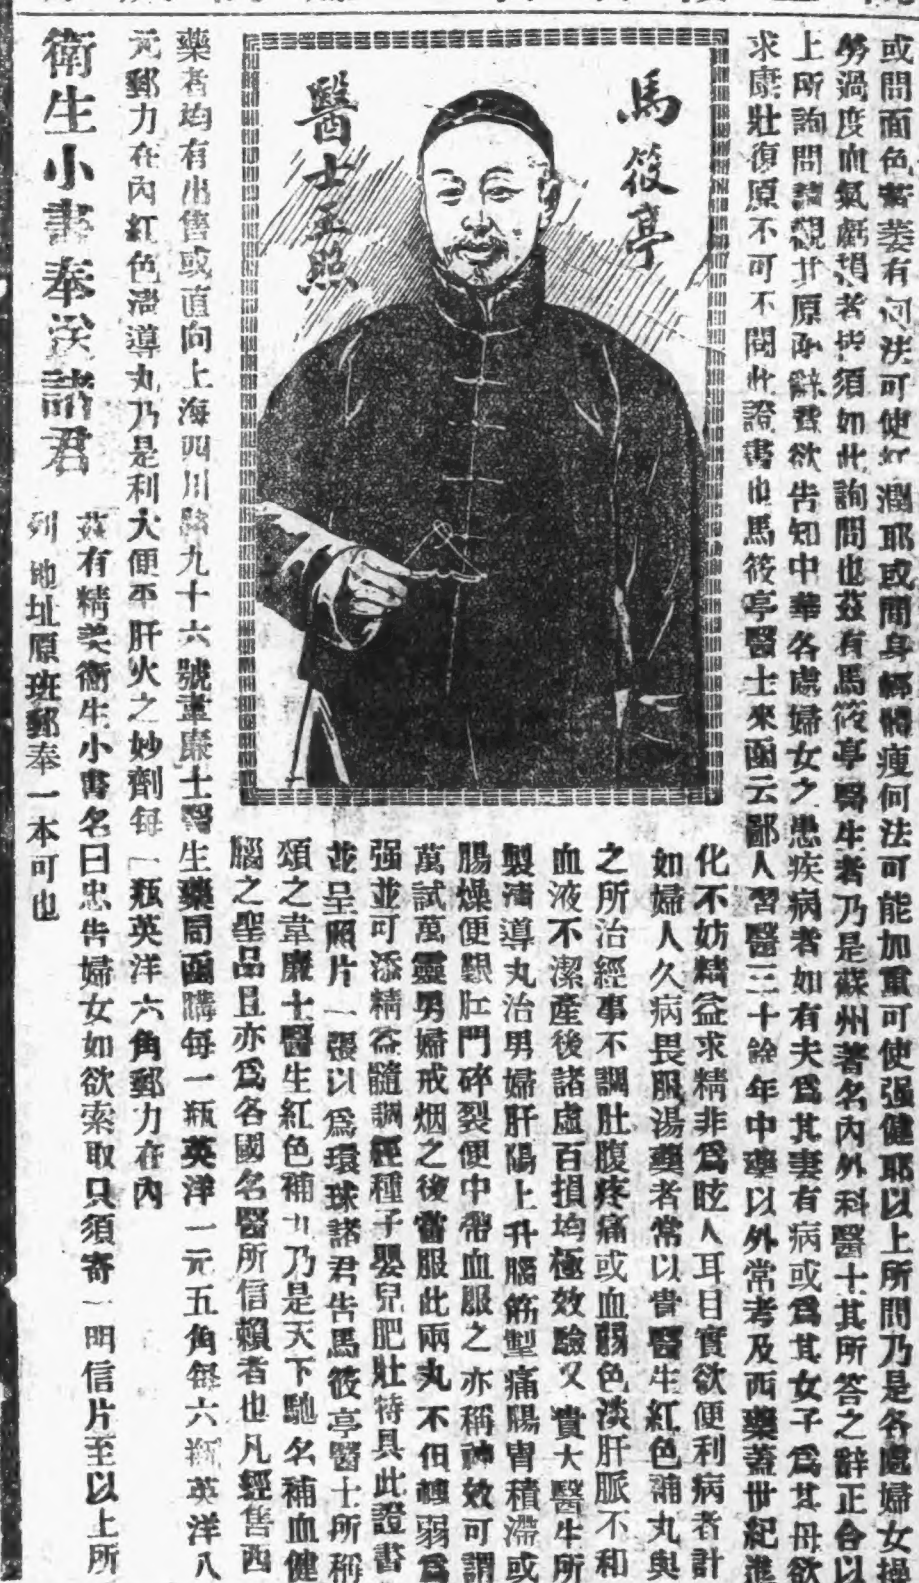 或問面色黃萎有何法可使紅潤耶或問身軀體瘦何法可能加重可使强健耶以上所問乃是各處婦女操
勞過度血氣虧損者皆須如此詢問也茲有馬筱亭醫生者乃是蘇州著名內外科醫士其所答之辭正合以
上所詢問請觀其原函辭云欲告知中華各處婦女之患疾病者如有夫爲其妻有病或爲其女子爲其母欲
求康壯復原不可不閱此證書也馬筱亭醫士來函云鄙人習醫三十餘年中藥以外常考及西藥蓋世紀進
化不妨精益求精非爲眩人耳目實欲便利病者計
如婦人久病畏服湯藥者常以貴醫生紅色補丸與
之所治經事不調肚腹疼痛或血賜色淡肝脈不和
血液不潔產後諸虛百損均極效驗又貴大醫生所
製清導丸治男婦肝陽上升腦筋掣痛腸胃積滯或
腸燥便艱肛門碎裂便中帶血服之亦稱神效可謂
萬試萬靈男婦戒烟之後當服此兩丸不但轉弱爲
强並可添精益髓調經種子嬰兒肥壯特具此證書
並呈照片一張以爲環球諸君告馬筱亭醫士所稱
頌之韋廉士醫生紅色補丸乃是天下馳名補血健
腦之聖品且亦爲各國名醫所信賴者也凡經售西
藥者均有出售或直向上海四川路九十六號韋廉士醫生藥局函購每一瓶英洋一元五角每六瓶英洋八
元郵力在內紅色清導丸乃是利大便平肝火之妙劑每一瓶英洋六角郵力在內
馬筱亭
醫士玉照
衛生小書奉送諸君
茲有精美衛生小書名曰忠告婦女如欲索取只須寄一明信片至以上所
列地址原班郵奉一本可也